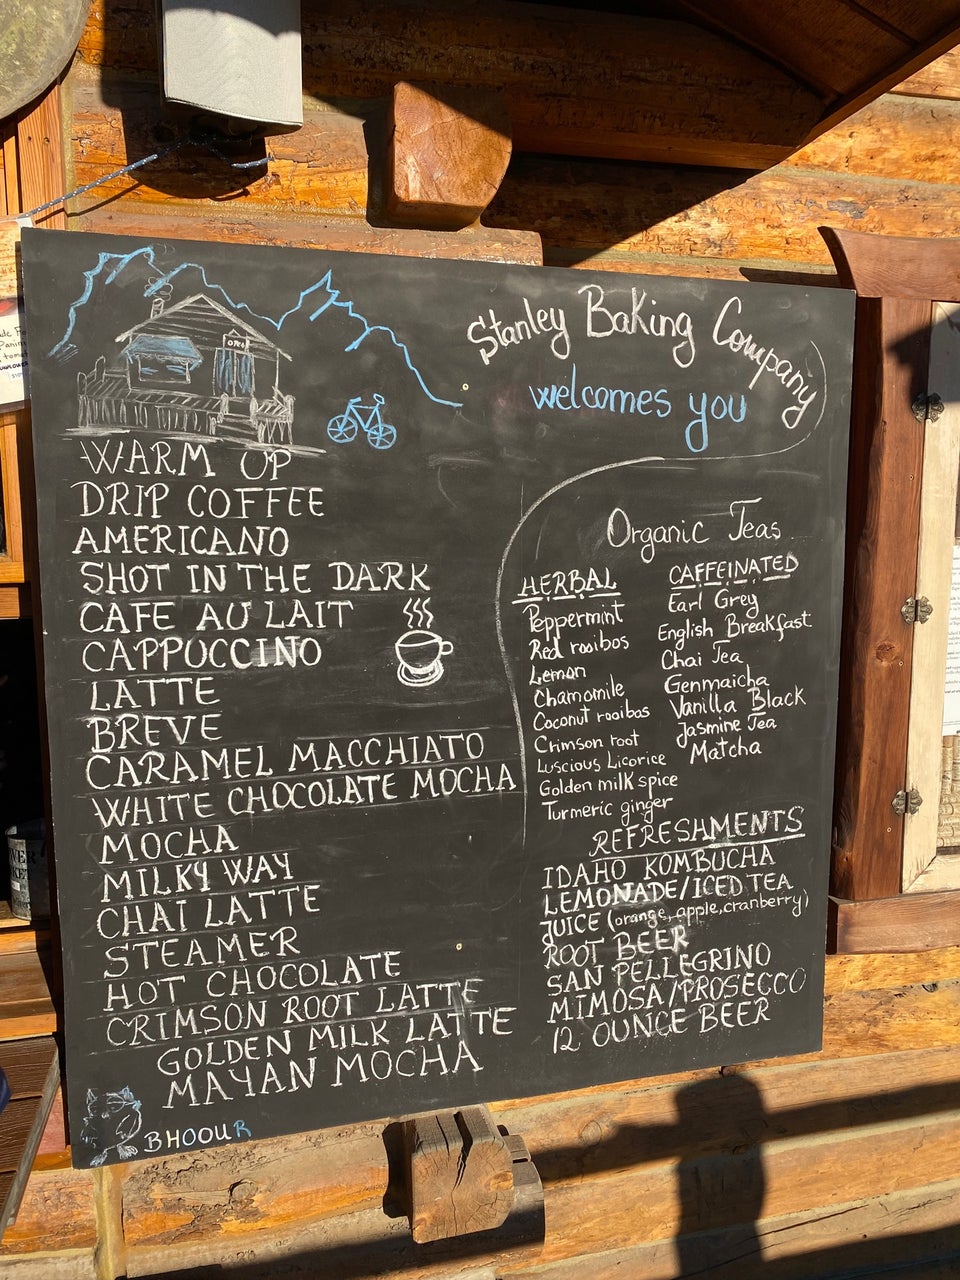 Stanley Baking Company
welcomes you
OPEN
WARM UP
DRIP COFFEE
AMERICANO
SHOT IN THE DARK
CAFE AU LAIT
CAPPUCCINO
LATTE
BREVE
CARAMEL MACCHIATO
WHITE CHOCOLATE MOCHA
MOCHA
MILKY WAY
CHAI LATTE
STEAMER
HOT CHOCOLATE
CRIMSON ROOT LATTE
GOLDEN MILK LATTE
MAYAN MOCHA
BHOOUR
Organic Teas
HERBAL
Peppermint
Red rooibos
Lemon
Chamomile
Coconut rooibos
Crimson root
Luscious Licorice
Golden milk spice
Turmeric ginger
CAFFEINATED
Earl Grey
English Breakfast
Chai Tea
Genmaicha
Vanilla Black
Jasmine Tea
Matcha
REFRESHMENTS
IDAHO KOMBUCHA
LEMONADE/ICED TEA
JUICE (orange, apple, cranberry)
ROOT BEER
SAN PELLEGRINO
MIMOSA/PROSECCO
12 OUNCE BEER